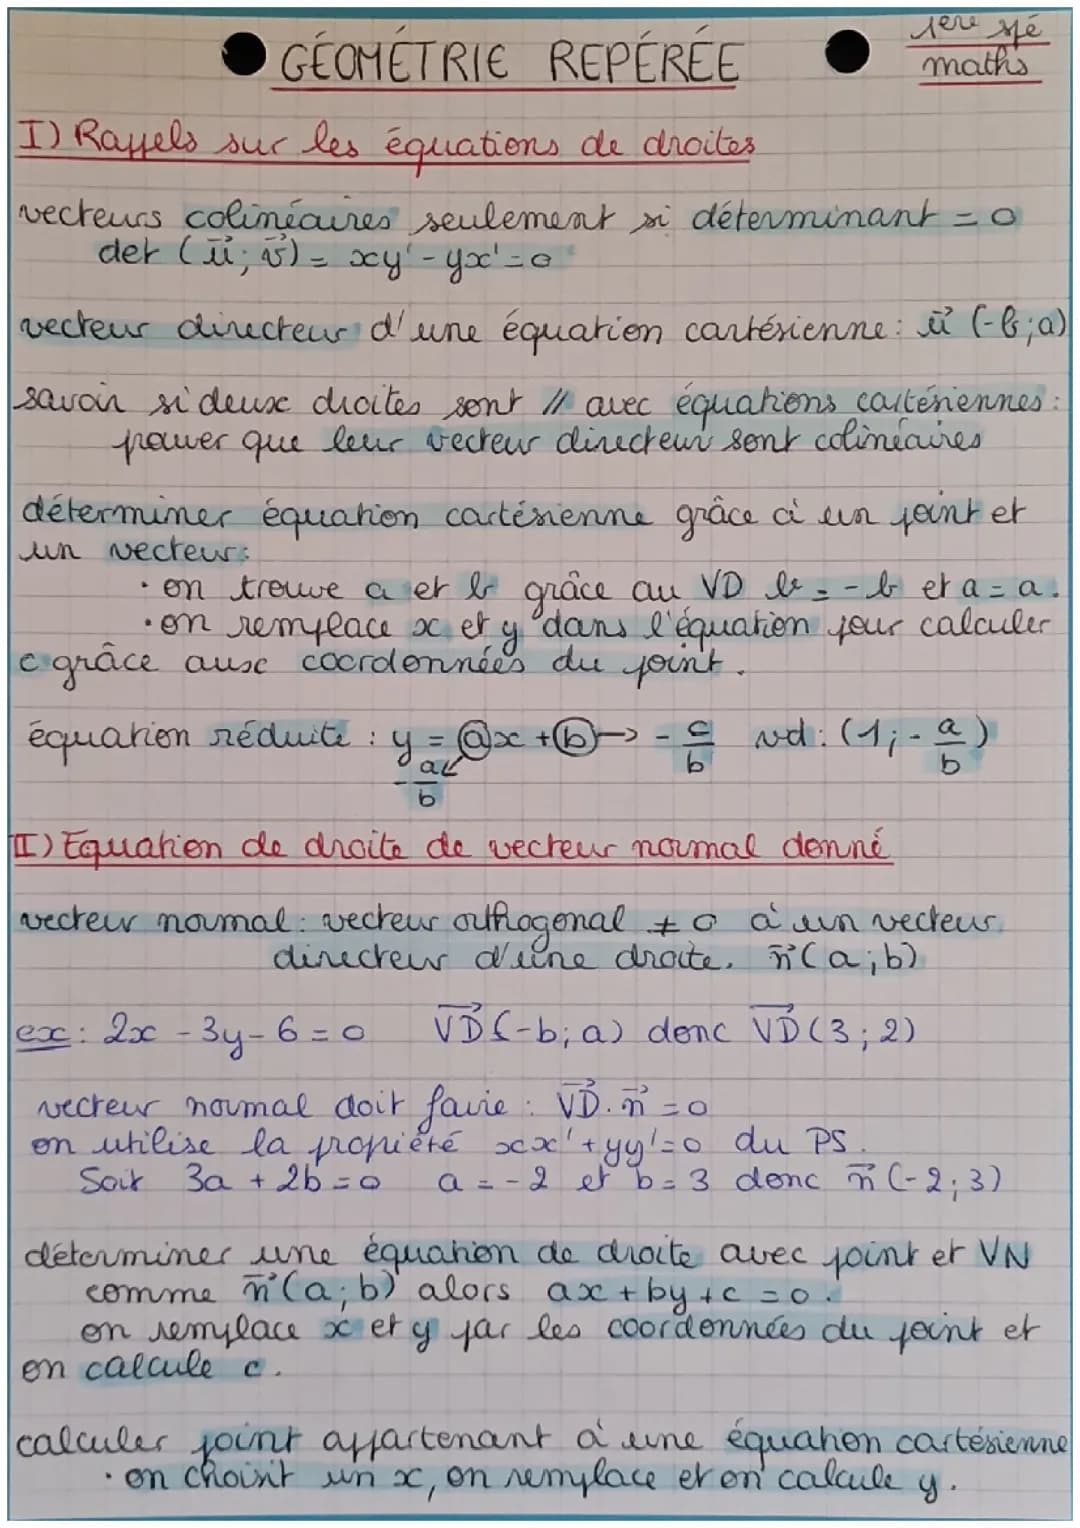 GÉOMÉTRIE REPÉRÉE
1ère spé
maths
I) Rappels sur les équations de droites
vecteurs colinéaires seulement si déterminant = 0
det (u⃗; v⃗) = xy' - yx' = 0
vecteur directeur d'une équation cartésienne : u⃗ (-b; a)
savoir si deux droites sont // avec équations cartésiennes :
prouver que leur vecteur directeur sont colinéaires
déterminer équation cartésienne grâce à un point et
un vecteur :
· on trouve a et b grâce au VD b = -b et a = a.
· on remplace x et y dans l'équation pour calculer
c grâce aux coordonnées du point.
équation réduite : y = ax + b → - c/b vd : (1; - a/b)
- a/b
II) Equation de droite de vecteur normal donné
vecteur normal : vecteur orthogonal ≠ 0 à un vecteur
directeur d'une droite. n⃗ (a; b)
ex : 2x - 3y - 6 = 0 VD⃗ (-b; a) donc VD⃗ (3; 2)
vecteur normal doit faire : VD⃗ . n⃗ = 0
on utilise la propiété xx' + yy' = 0 du PS.
Soit 3a + 2b = 0 a = -2 et b = 3 donc n⃗ (-2; 3)
déterminer une équation de droite avec point et VN
comme n⃗ (a; b) alors ax + by + c = 0.
on remplace x et y par les coordonnées du point et
on calcule c.
calculer point appartenant à une équation cartésienne
· on choisit un x, on remplace et on calcule y.